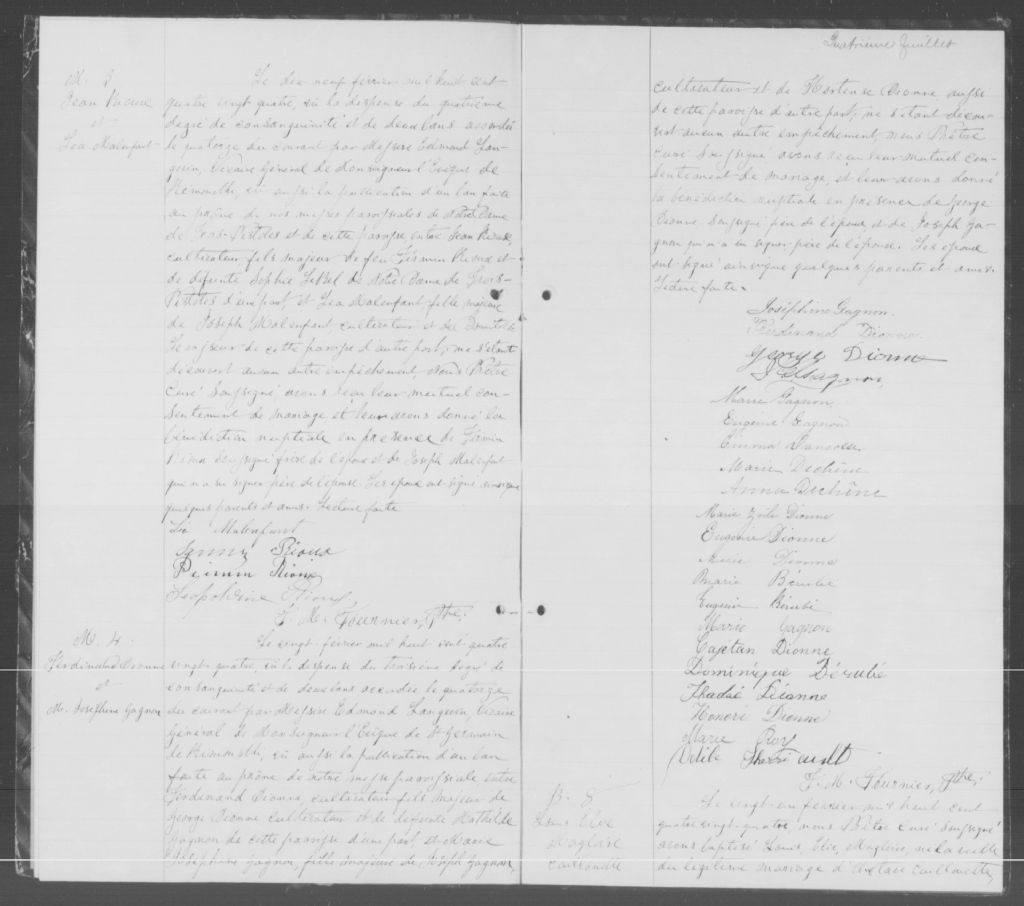 M. 3
Jean Rioux
et
Léa Malenfant
Le dix neuf février mil huit cent
quatre vingt quatre, vu la dispense du quatrième
degré de consanguinité et de deux bans accordés
le quatorze du courant par Messire Edmond Lan-
gevin, Vicaire Général de Monseigneur l'Evêque de
Rimouski, vu aussi la publication d'un ban faite
au prône de nos messes paroissiales de Notre Dame
de Trois-Pistoles et de cette paroisse, entre Jean Rioux,
cultivateur fils majeur de feu Firmin Rioux et
de défunte Sophie LeBel de Notre Dame de Trois-
Pistoles d'une part et Léa Malenfant fille majeure
de Joseph Malenfant cultivateur et de Domitilde
de cette paroisse d'autre part, ne s'étant
découvert aucun autre empêchement, Nous Prêtre
Curé Soussigné, avons reçu leur mutuel con-
sentement de mariage et leur avons donné la
bénédiction nuptiale en présence de Firmin
Rioux soussigné frère de l'époux et de Joseph Malenfant
qui n'a su signer père de l'épouse. Les époux ont signé ainsi que
quelques parents et amis. Lecture faite
Malenfant
Rioux
Rioux
Léopoldine Rioux
F. M. Fournier, Ptre.
M. 4.
Ferdinand Dionne
et
M. Joséphine Gagnon
Le vingt février mil huit cent quatre
vingt quatre, vu la dispense du troisième degré de
consanguinité et de deux bans accordés le quatorze
du courant par Messire Edmond Langevin, Vicaire
Général de Monseigneur l'Evêque de St Germain
de Rimouski, vu aussi la publication d'un ban
faite au prône de notre messe paroissiale entre
Ferdinand Dionne, cultivateur fils majeur de
George Dionne cultivateur et de défunte Mathilde
Gagnon de cette paroisse d'une part, et Marie
Joséphine Gagnon, fille majeure de Joseph Gagnon,
Quatrième feuillet
cultivateur et de Hortense Dionne aussi
de cette paroisse d'autre part; ne s'étant décou-
vert aucun autre empêchement, nous Prêtre
Curé Soussigné avons reçu leur mutuel con-
sentement de mariage, et leur avons donné
la bénédiction nuptiale en présence de George
Dionne soussigné père de l'époux et de Joseph Ga-
gnon qui n'a su signer père de l'épouse. Les époux
ont signé ainsi que quelques parents et amis.
Lecture faite.
Joséphine Gagnon.
Ferdinand Dionne.
George Dionne
Gagnon,
Marie Gagnon.
Eugénie Gagnon
Emma
Marie Dechêne
Anna Dechêne
Marie Zoile Dionne
Eugénie Dionne
Dionne
Marie Bérubé
Eugénie Bérubé
Marie Gagnon
Cajétan Dionne
Dominique Bérubé
Thadée Dionne
Honoré Dionne
Marie Roy
Odile
F. M. Fournier, Ptre.
B. 8
Louis Elie
Magloire
Caillouette
Le vingt-un février mil huit cent
quatre vingt-quatre, nous Prêtre Curé Soussigné
avons baptisé Louis, Elie, Magloire, né la veille
du légitime mariage d'Octave Caillouette,